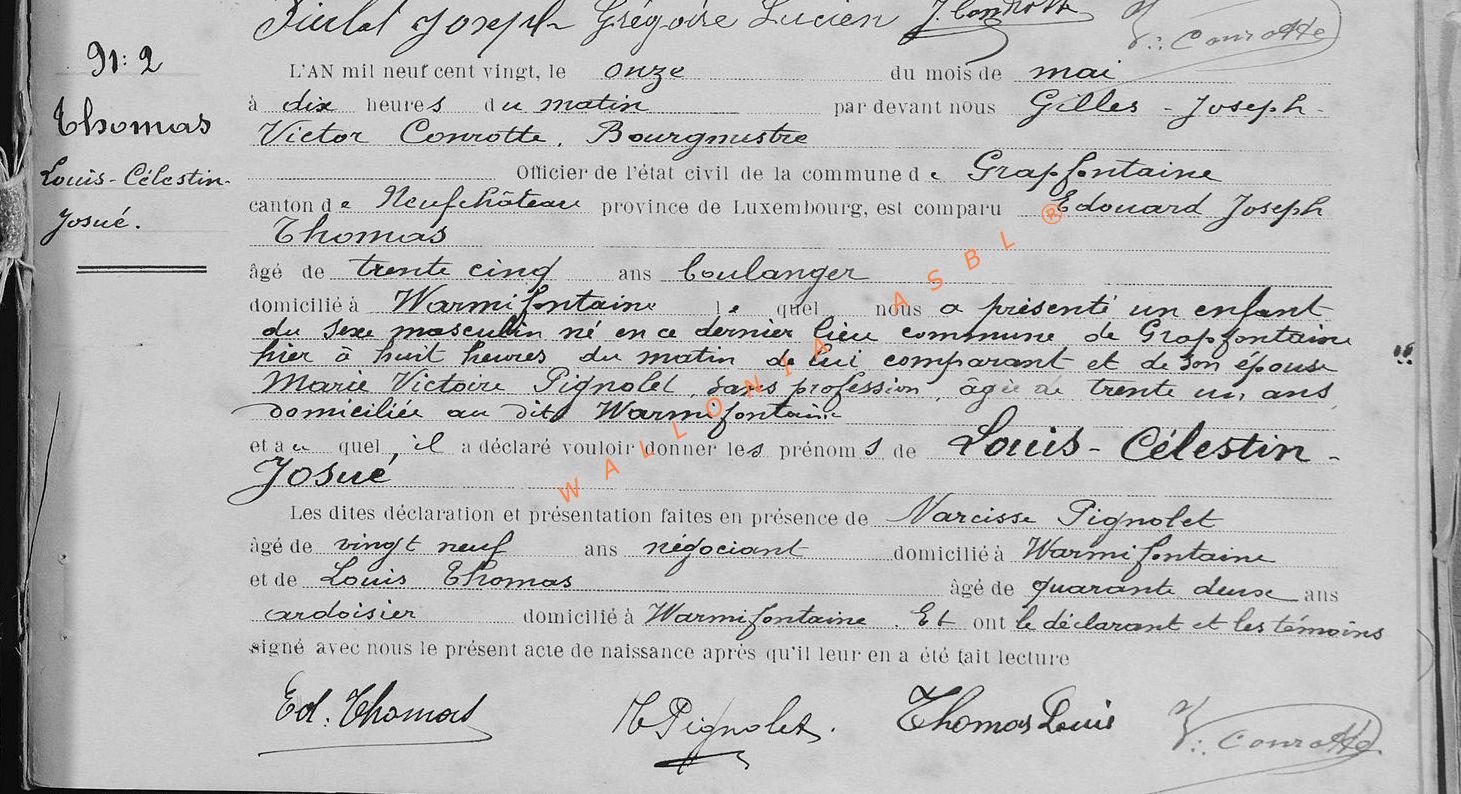 Joseph Grégoire Lucien J. Conrotte
V. Conrotte
N: 2
Thomas
Louis-Célestin-
Josué.
L'AN mil neuf cent vingt, le onze du mois de mai
à dix heures du matin par devant nous Gilles-Joseph-
Victor Conrotte, Bourgmestre
Officier de l'état civil de la commune de Grapfontaine
canton de Neufchâteau province de Luxembourg, est comparu Edouard Joseph
Thomas
âgé de trente cinq ans boulanger
domicilié à Warmifontaine le quel nous a présenté un enfant
du sexe masculin né en ce dernier lieu commune de Grapfontaine
hier à huit heures du matin de lui comparant et de son épouse
Marie Victoire Pignolet, sans profession, âgée de trente un ans
domiciliée au dit Warmifontaine
et au quel, il a déclaré vouloir donner les prénoms de Louis-Célestin-
Josué
Les dites déclaration et présentation faites en présence de Narcisse Pignolet
âgé de vingt neuf ans négociant domicilié à Warmifontaine
et de Louis Thomas âgé de quarante deux ans
ardoisier domicilié à Warmifontaine. Et ont le déclarant et les témoins
signé avec nous le présent acte de naissance après qu'il leur en a été fait lecture
Ed. Thomas N Pignolet. Thomas Louis V. Conrotte
WALLONIA ASBL ®